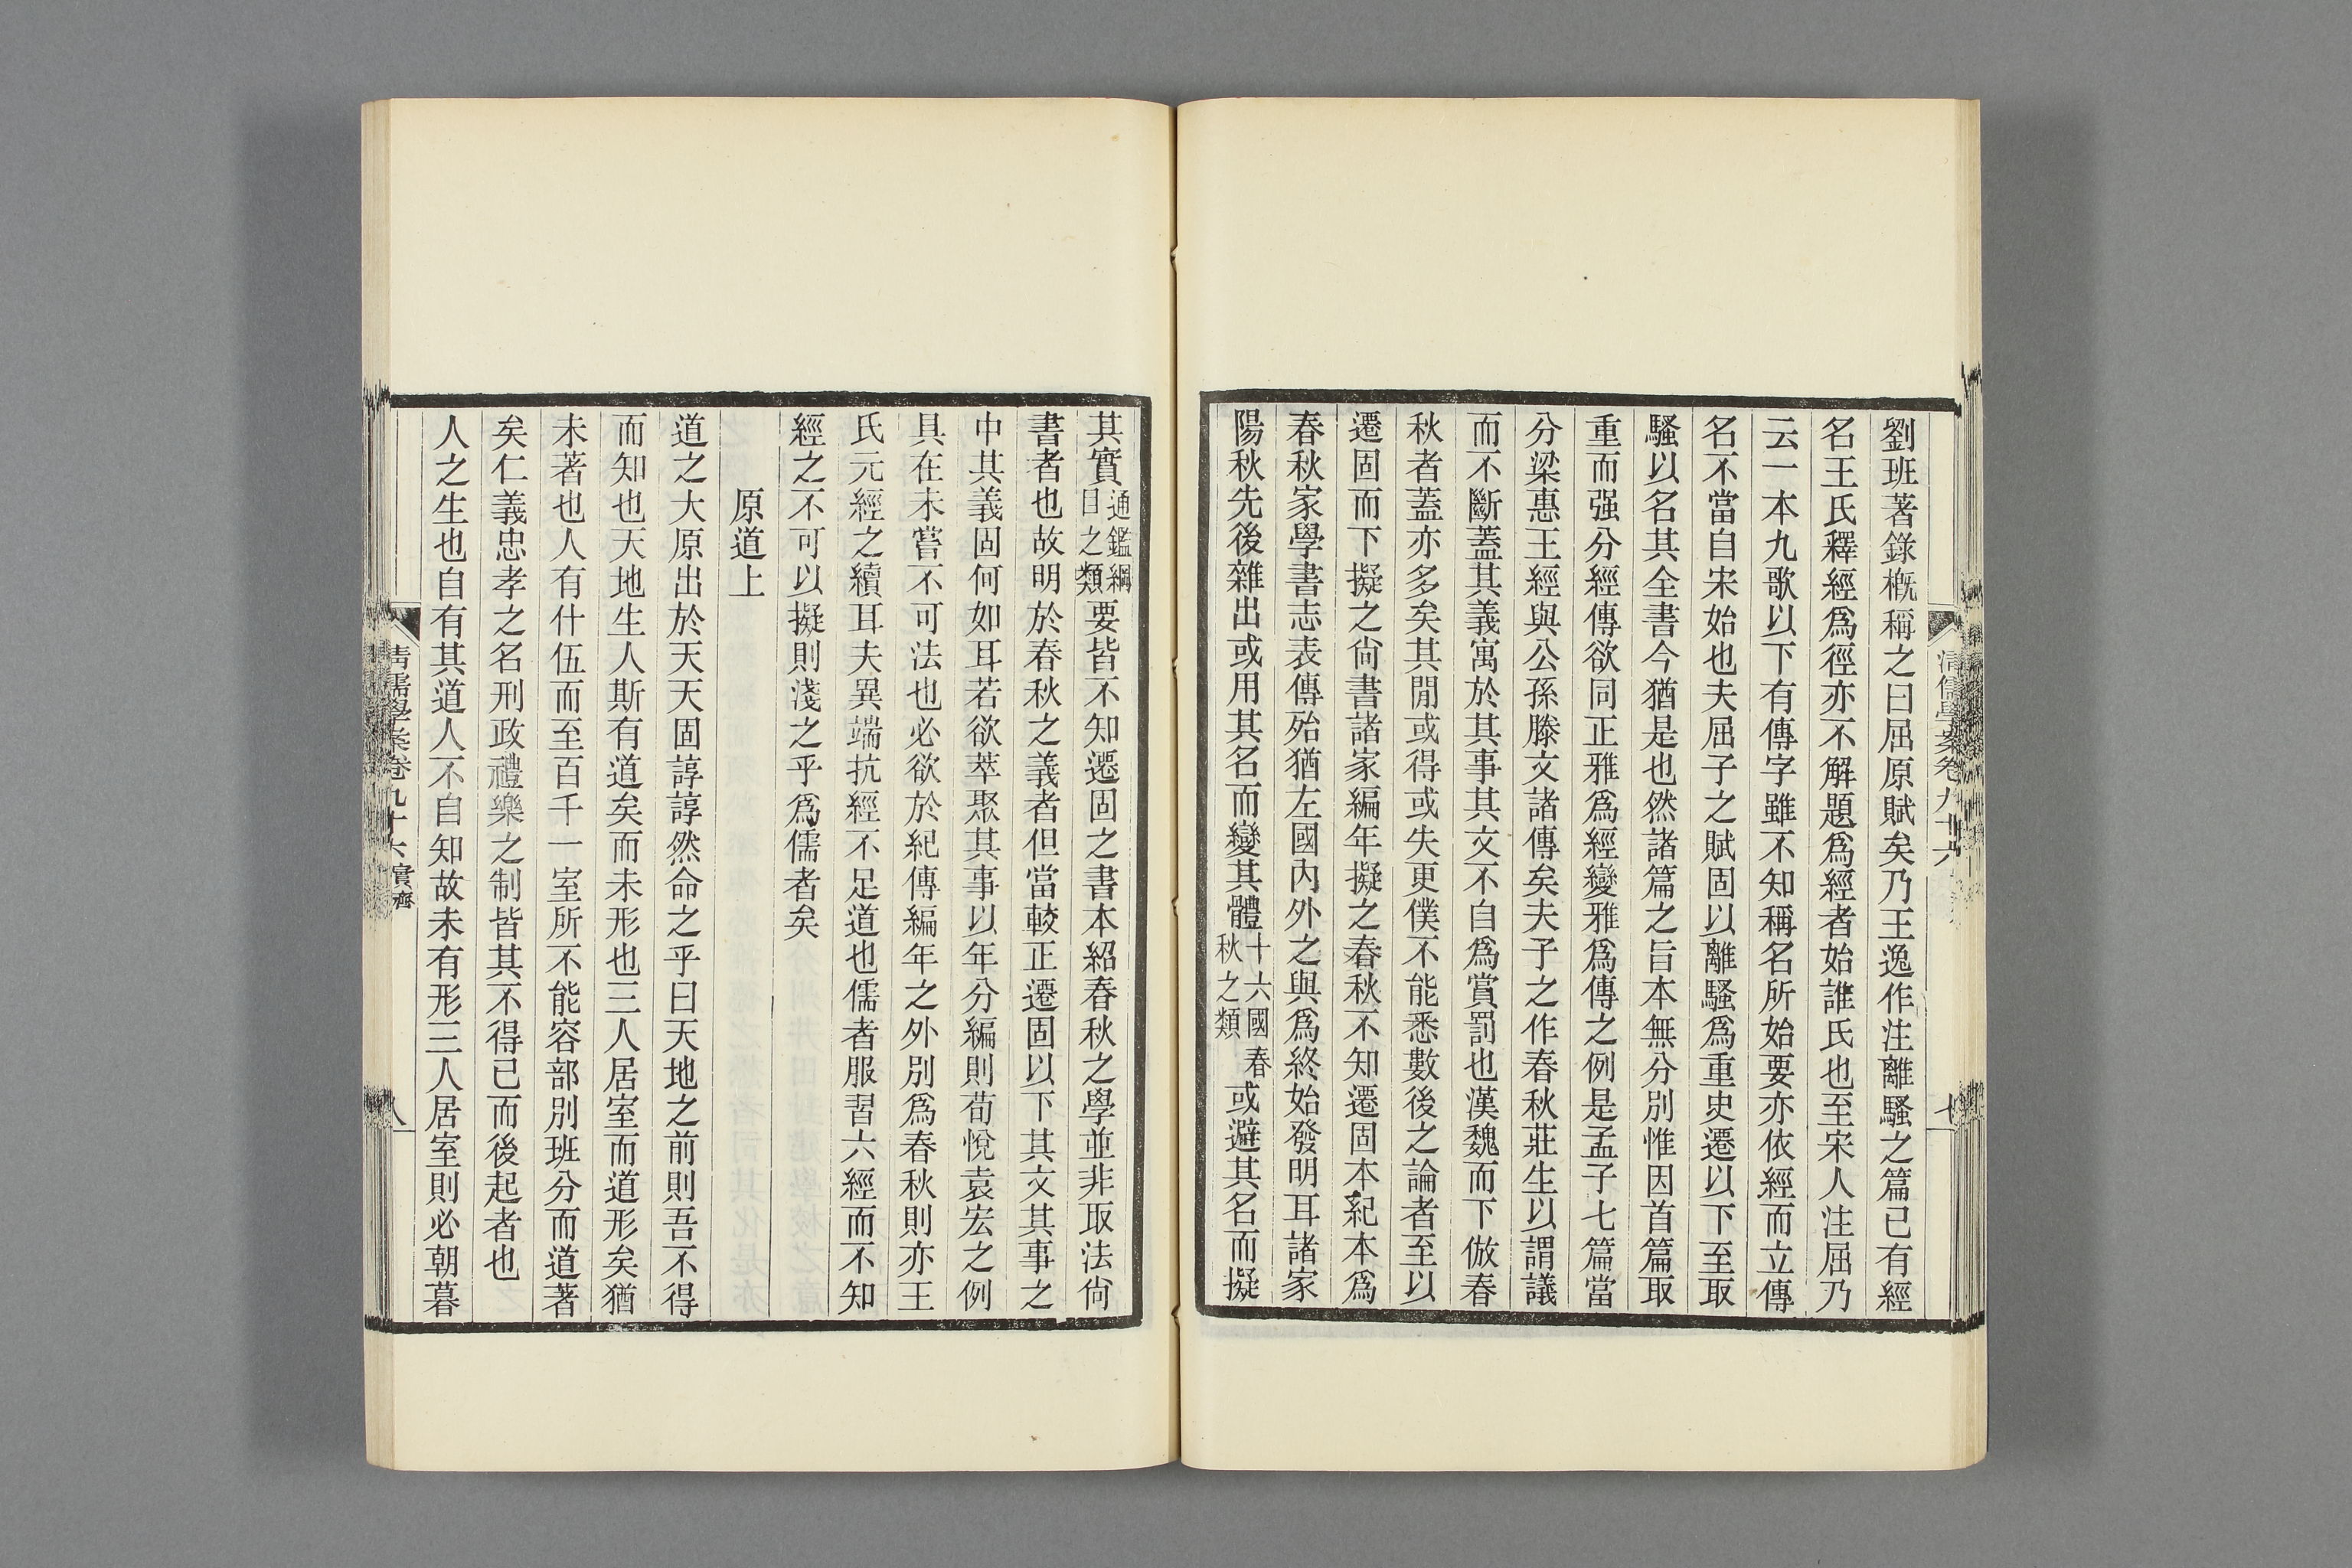 劉班著錄概稱之曰屈原賦矣乃王逸作注離騷之篇已有經
名王氏釋經爲徑亦不解題爲經者始誰氏也至宋人注屈乃
云一本九歌以下有傳字雖不知稱名所始要亦依經而立傳
名不當自宋始也夫屈子之賦固以離騷爲重史遷以下至取
騷以名其全書今猶是也然諸篇之旨本無分別惟因首篇取
重而强分經傳欲同正雅爲經變雅爲傳之例是孟子七篇當
分梁惠王經與公孫滕文諸傳矣夫子之作春秋莊生以謂議
而不斷蓋其義寓於其事其文不自爲賞罰也漢魏而下倣春
秋者蓋亦多矣其閒或得或失更僕不能悉數後之論者至以
遷固而下擬之尙書諸家編年擬之春秋不知遷固本紀本爲
春秋家學書志表傳殆猶左國內外之與爲終始發明耳諸家
陽秋先後雜出或用其名而變其體十六國春秋之類或避其名而擬
清儒學案卷九十六
七
其實通鑑綱目之類要皆不知遷固之書本紹春秋之學並非取法尙
書者也故明於春秋之義者但當較正遷固以下其文其事之
中其義固何如耳若欲萃聚其事以年分編則荀悅袁宏之例
具在未嘗不可法也必欲於紀傳編年之外別爲春秋則亦王
氏元經之續耳夫異端抗經不足道也儒者服習六經而不知
經之不可以擬則淺之乎爲儒者矣
原道上
道之大原出於天天固諄諄然命之乎曰天地之前則吾不得
而知也天地生人斯有道矣而未形也三人居室而道形矣猶
未著也人有什伍而至百千一室所不能容部別班分而道著
矣仁義忠孝之名刑政禮樂之制皆其不得已而後起者也
人之生也自有其道人不自知故未有形三人居室則必朝暮
清儒學案卷九十六 實齋
八